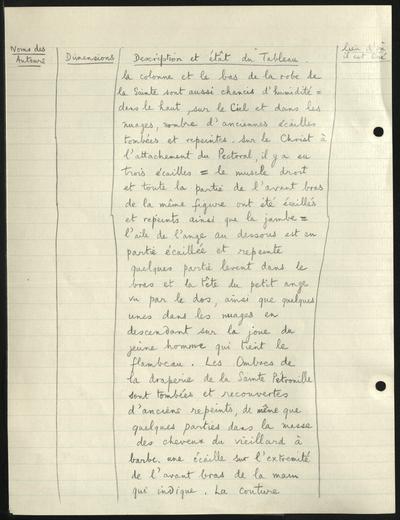 Noms des
Auteurs
Dimensions
Description et état du Tableau
lieu d'où
il est tiré
la colonne et le bas de la robe de
la Sainte sont aussi chancis d'humidité =
dans le haut, sur le Ciel et dans les
nuages, nombre d'anciennes écailles
tombées et repeintes. sur le Christ à
l'attachement du Pectoral, il y a eu
trois écailles = le muscle droit
et toute la partie de l'avant bras
de la même figure ont été écaillés
et repeints ainsi que la jambe =
l'aile de l'ange au dessous est en
partie écaillée et repeinte
quelques partie levent dans le
bras et la tête du petit ange
vu par le dos, ainsi que quelques
unes dans les nuages en
descendant sur la joue du
jeune homme qui tient le
flambeau. Les Ombres de
la draperie de la Sainte Petronille
sont tombées et recouvertes
d'anciens repeints, de même que
quelques parties dans la masse
des cheveux du vieillard à
barbe. une écaille sur l'extremité
de l'avant bras de la main
qui indique. La couture